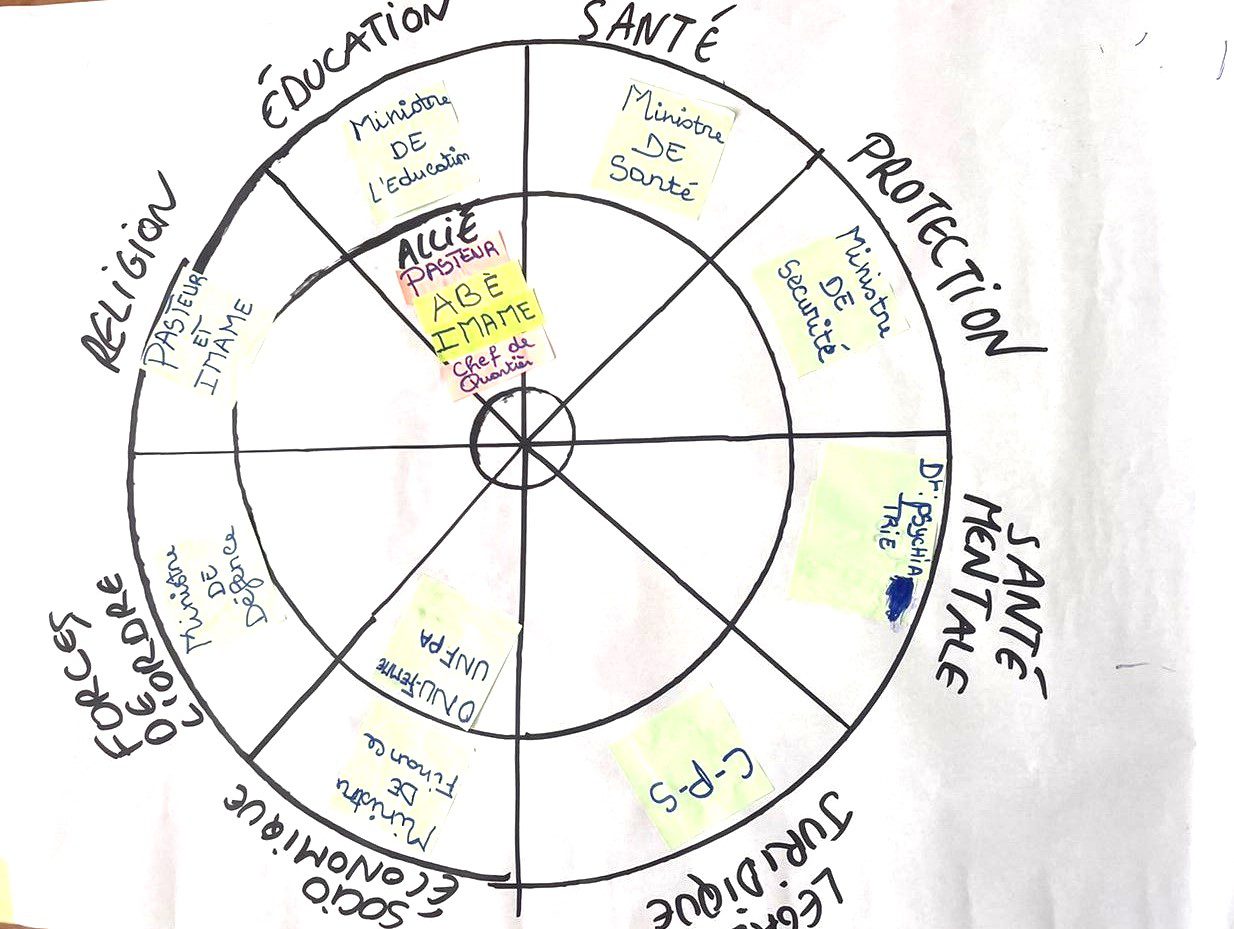 ÉDUCATION
Ministre
DE
L'Education
SANTÉ
Ministre
DE
Santé
PROTECTION
Ministre
DE
Securité
SANTÉ
MENTALE
Dr: PSYCHIA
TRIE
JURIDIQUE
C-P-S
SOCIO
ÉCONOMIQUE
UNFPA
ONU-FEMME
Ministre
DE
Finance
FORCES
DE
L'ORDRE
Ministre
DE
Défence
RELIGION
PASTEUR
ET
IMAME
ALLIÉ
PASTEUR
ABÈ
IMAME
Chef de
Quartier